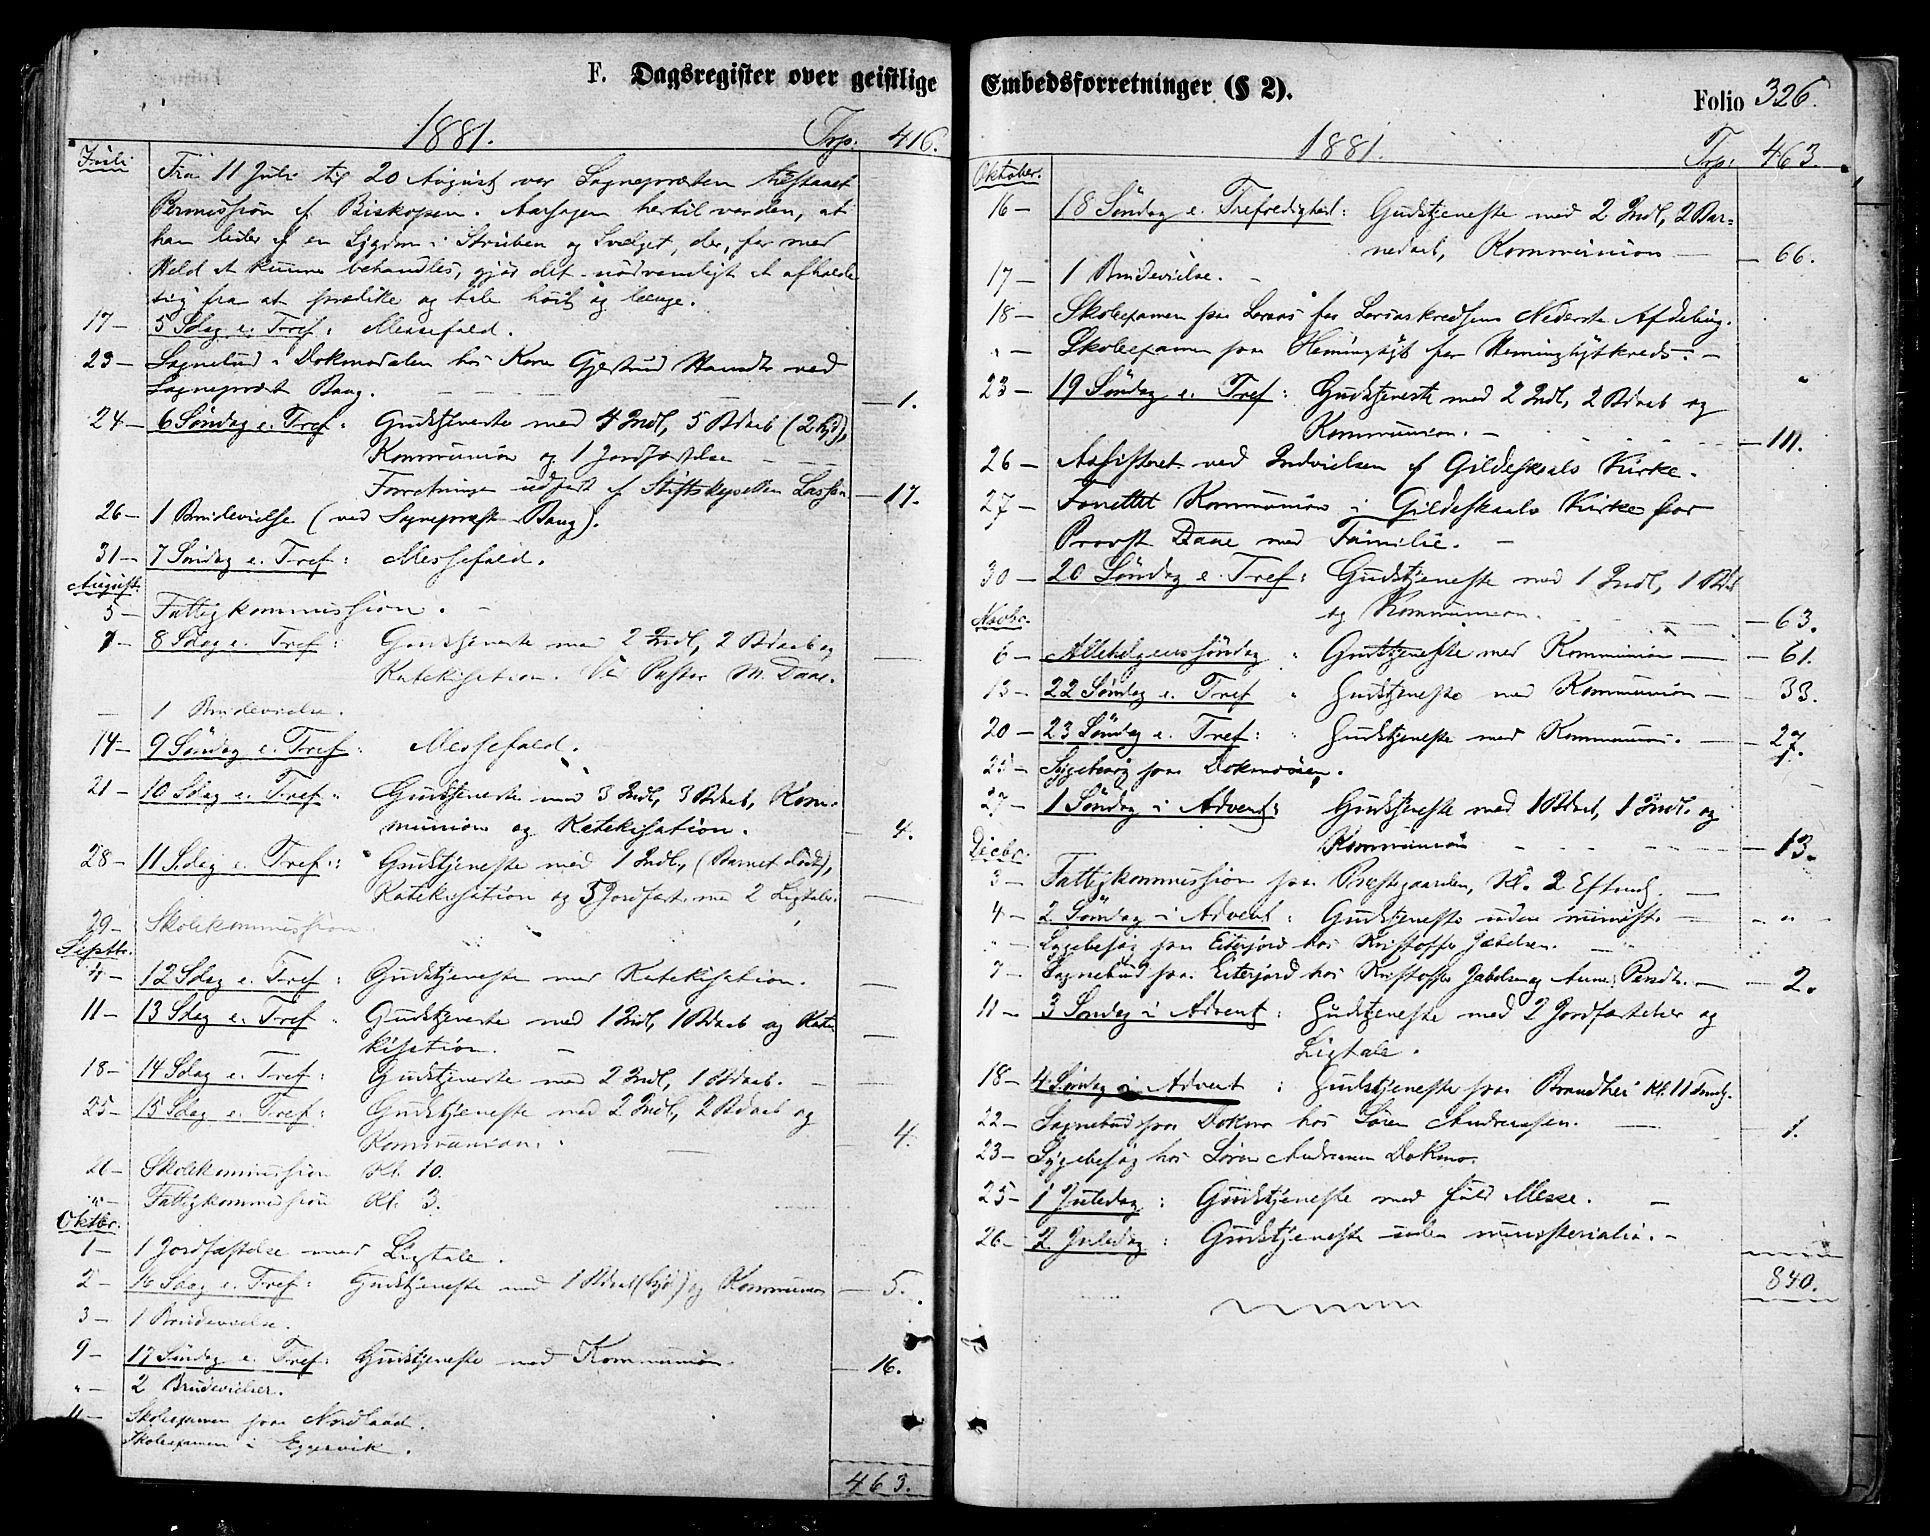 F. Dagsregister over geistlige
1881.
Trsp: 416.
Juli
Fra 11 Juli til 20 August var Sognepræsten tilstaaet
Permission af Biskopen. Aarsagen hertil var den, at
han lider af en Sygdom i Struben og Svælget, der, for med
Held at kunne behandles, gjør det nødvendigt at afholde
sig fra at prædike og tale høit og længe.
17 – 5 Sdag e. Tref: Messefald.
23 – Sognebud i Dokmodalen hos Kone Gjertrud Hansdtr ved
Sognepræst Bang. – 1.
24 – 6 Søndag e. Tref: Gudstjeneste med 4 Indl, 5 Bdaab (2 hjd),
Kommunion og 1 Jordfæstelse
Forretningen udført af Stiftskapellan Lassen – 17.
26 – 1 Brudevielse (ved Sognepræst Bang).
31 – 7 Søndag e. Tref: Messefald.
August.
5 – Fattigkommission. –
7 – 8 Sdag e. Tref: Gudstjeneste med 2 Indl, 2 Bdaab og
Katekisation. Ved Pastor M. Daae.
– 1 Brudevielse.
14 – 9 Søndag e. Tref: Messefald.
21 – 10 Sdag e. Tref: Gudstjeneste med 3 Indl, 3 Bdaab, Kom-
munion og Katekisation. – 4.
28 – 11 Sdag e. Tref: Gudstjeneste med 1 Indl, (Barnet dødt),
Katekisation og 5 Jordfæst. med 2 Ligtaler.
29 – Skolekommission.
Septbr.
4 – 12 Sdag e. Tref: Gudstjeneste med Katekisation.
11 – 13 Sdag e. Tref: Gudstjeneste med 1 Indl, 1 Bdaab og Kate-
kisation. –
18 – 14 Sdag e. Tref: Gudstjeneste med 2 Indl, 1 Bdaab. –
25 – 15 Sdag e. Tref: Gudstjeneste med 2 Indl, 2 Bdaab og
Kommunion. – 4.
Skolekommission Kl. 10.
" – Fattigkommission Kl. 3.
Oktbr.
1 – 1 Jordfæstelse med Ligtale.
2 – 16 Sdag e. Tref: Gudstjeneste med 1 Bdaab (hjd) og Kommunion – 5.
3 – 1 Brudevielse.
9 – 17 Søndag e. Tref: Gudstjeneste med Kommunion – 16.
" – 2 Brudevielser.
11 – Skoleexamen paa Nordland.
Skoleexamen i Eggesvik.
463.
Embedsforretninger (§ 2).
Folio 326.
1881.
Trsp: 463.
Oktober.
16 – 18 Søndag e. Trefoldighed: Gudstjeneste med 2 Indl, 2 Bar-
nedaab, Kommunion – 66.
17 – 1 Brudevielse. –
18 – Skoleexamen paa for Nederste Afdeling.
" – Skoleexamen paa Hemingløyt for Heminghytkreds. –
23 – 19 Søndag e. Tref: Gudstjeneste med 2 Indl, 2 Bdaab og
Kommunion. – 111.
26 – Assisteret ved Indvielsen af Gildeskaals Kirke.
27 – Forrettet Kommunion i Gildeskaals Kirke for
Provst Daae med Familie. –
30 – 20 Søndag e. Tref: Gudstjeneste med 1 Indl, 1 Bdb
og Kommunion. – 63.
Novbr.
6 – Allehelgenssøndag " Gudstjeneste med Kommunion – 61.
13 – 22 Søndag e. Tref " Gudstjeneste med Kommunion – 33.
20 – 23 Søndag e. Tref: " Gudstjeneste med Kommunion. – 27.
25 – Sygebesøg paa Dokmoøren.
27 – 1 Søndag i Advent: Gudstjeneste med 1 Bdaab, 1 Indl. og
Kommunion – 13.
Decbr.
3 – Fattigkommission paa Præstegaarden, Kl. 2 Efterm.
4 – 2 Søndag i Advent: Gudstjeneste uden minist. – "
" – Sygebesøg paa Eiterjord hos Kristoffer Jakobsen.
7 – Sognebud paa Eiterjord hos Kristoffer Jakobsen og Anne Pensdtr. – 2.
11 – 3 Søndag i Advent: Gudstjeneste med 2 Jordfæstelser og
Ligtale.
18 – 4 Søndag i Advent: Gudstjeneste paa Kl. 11 Form.
22 – Sognebud paa Dokmo hos Søren Andreassen. – 1.
23 – Sygebesøg hos Søren Andreassen Dokmo.
25 – 1 Juledag: Gudstjeneste med fuld Messe. –
26 – 2 Juledag: Gudstjeneste uden ministerialia. –
840.